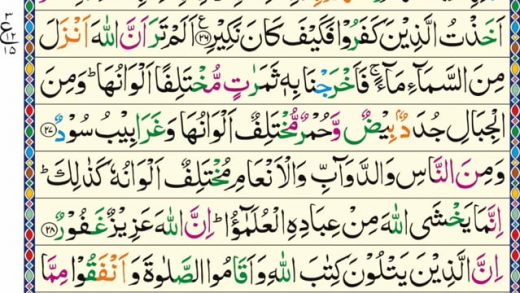 اَخَذْتُ الَّذِيْنَ كَفَرُوْا فَكَيْفَ كَانَ نَكِيْرِ ع ﴿۲۶﴾ اَلَمْ تَرَ اَنَّ اللّٰهَ اَنْزَلَ
مِنَ السَّمَآءِ مَآءً ۚ فَاَخْرَجْنَا بِهٖ ثَمَرٰتٍ مُّخْتَلِفًا اَلْوَانُهَا ؕ وَمِنَ
الْجِبَالِ جُدَدٌۢ بِيْضٌ وَّحُمْرٌ مُّخْتَلِفٌ اَلْوَانُهَا وَغَرَابِيْبُ سُوْدٌ ﴿۲۷﴾
وَمِنَ النَّاسِ وَالدَّوَآبِّ وَالْاَنْعَامِ مُخْتَلِفٌ اَلْوَانُهٗ كَذٰلِكَ ؕ
اِنَّمَا يَخْشَى اللّٰهَ مِنْ عِبَادِهِ الْعُلَمٰٓؤُا ؕ اِنَّ اللّٰهَ عَزِيْزٌ غَفُوْرٌ ﴿۲۸﴾
اِنَّ الَّذِيْنَ يَتْلُوْنَ كِتٰبَ اللّٰهِ وَاَقَامُوا الصَّلٰوةَ وَاَنْفَقُوْا مِمَّا